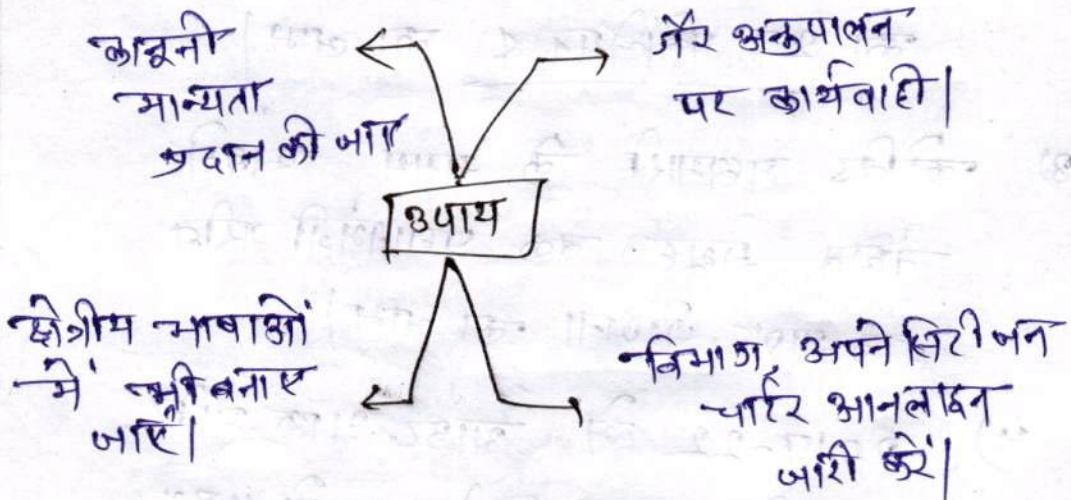 कानूनी
मान्यता
प्रदान की जाए
गैर अनुपालन
पर कार्यवाही।
उपाय
क्षेत्रीय भाषाओं
में भी बनाए
जाएं।
विभाग, अपने सिटीजन
चार्टर आनलाइन
जारी करें।